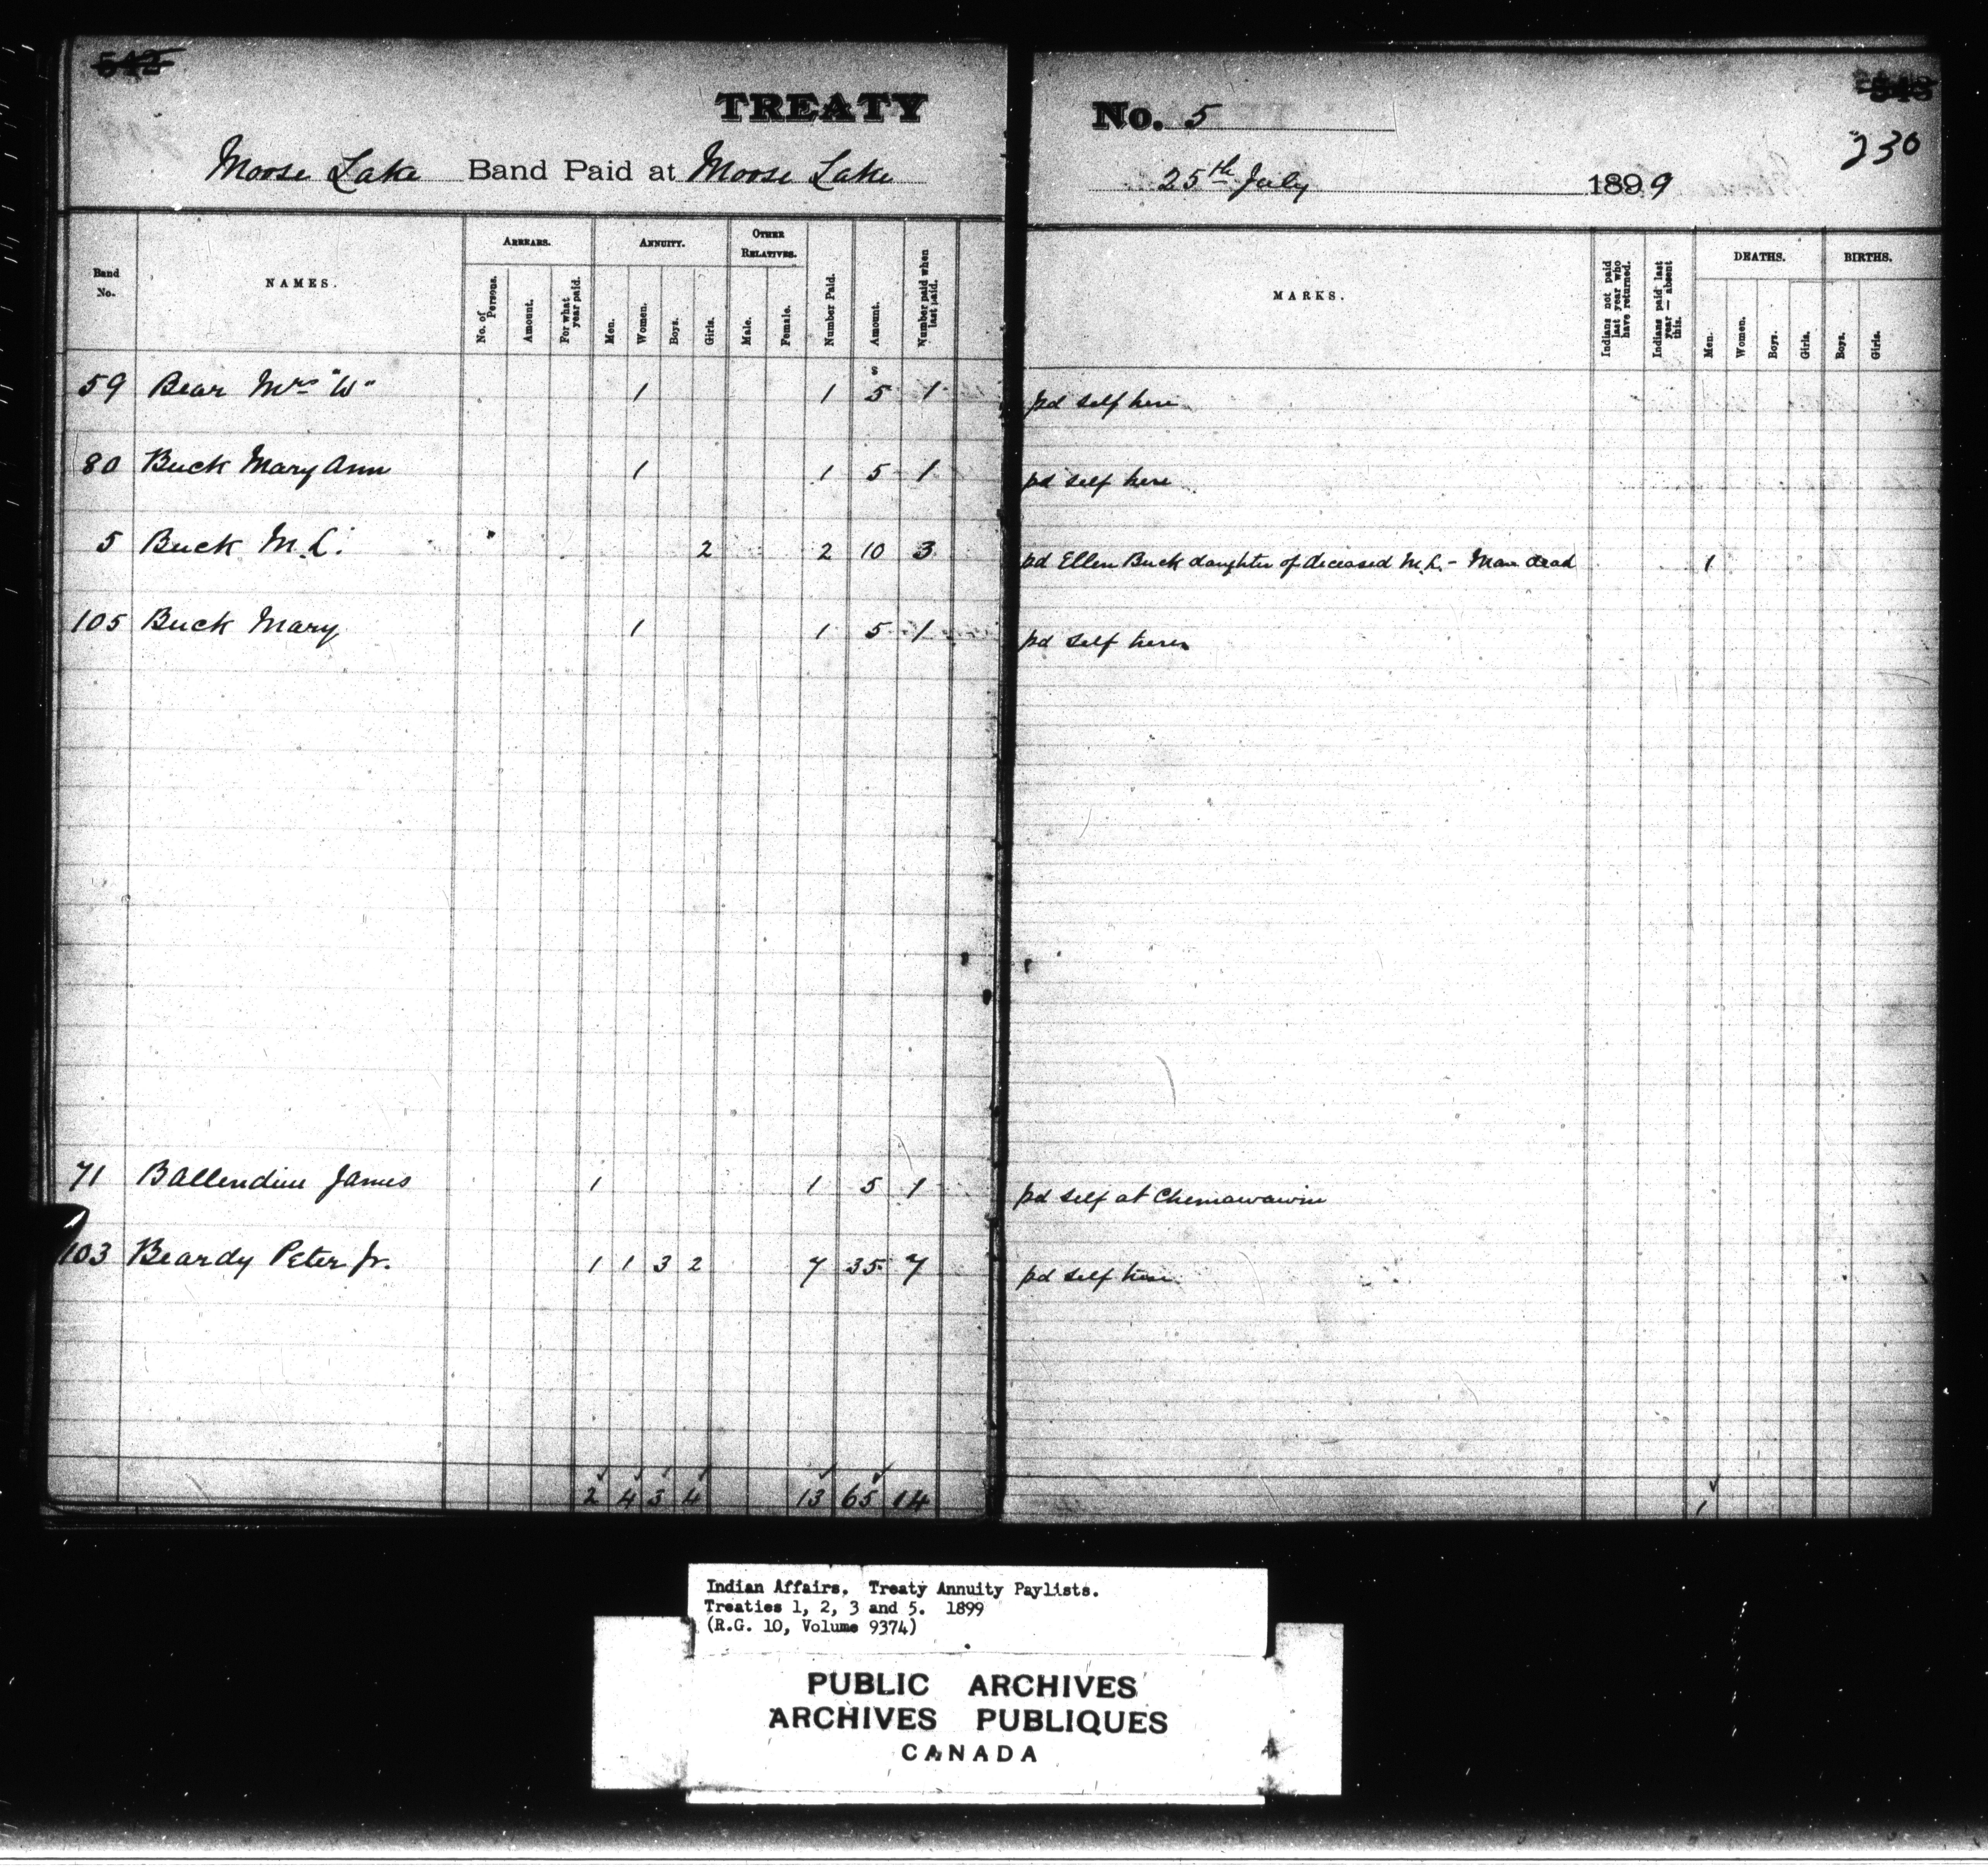 542
543
TREATY No. 5
230
Moose Lake Band Paid at Moose Lake 25th July 1899
Band No.
NAMES.
ARREARS.
No. of Persons.
Amount.
For what year paid.
ANNUITY.
Men.
Women.
Boys.
Girls.
OTHER RELATIVES.
Male.
Female.
Number Paid.
Amount.
Number paid when last paid.
MARKS.
Indians not paid last year who have returned.
Indians paid last year — absent this.
DEATHS.
Men.
Women.
Boys.
Girls.
BIRTHS.
Boys.
Girls.
$
59 Bear Mrs "W" 1 1 5 1 pd self here
80 Buck Mary Ann 1 1 5 1 pd self here
5 Buck M. L. 2 2 10 3 pd Ellen Buck daughter of deceased M. L. - Man dead 1
105 Buck Mary 1 1 5 1 pd self here
71 Ballendine James 1 1 5 1 pd self at Chemawawin
103 Beardy Peter Jr. 1 1 3 2 7 35 7 pd self here
2 4 3 4 13 65 14 1
Indian Affairs. Treaty Annuity Paylists.
Treaties 1, 2, 3 and 5. 1899
(R.G. 10, Volume 9374)
PUBLIC ARCHIVES
ARCHIVES PUBLIQUES
CANADA